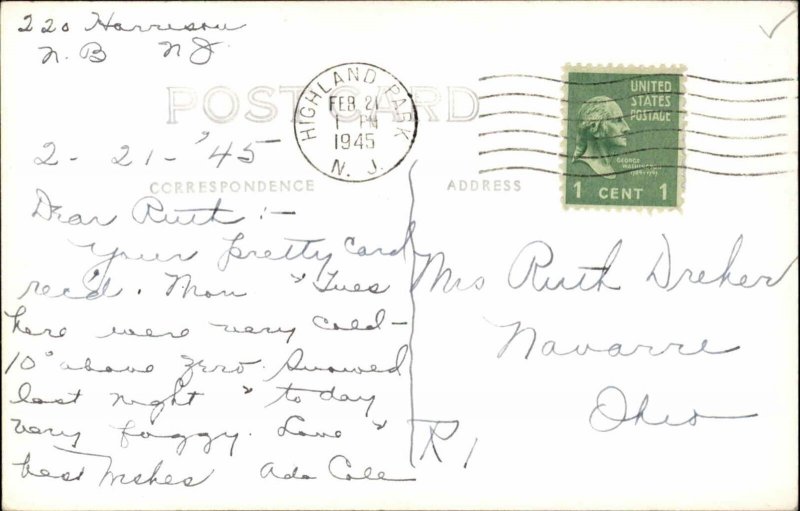 220 Harrison
N. B N J.
POST CARD
HIGHLAND PARK
FEB 21
1 PM
1945
N. J.
UNITED
STATES
POSTAGE
GEORGE
WASHINGTON
1 CENT 1
2-21-'45
CORRESPONDENCE
ADDRESS
Dear Ruth :-
Your pretty card
rec'd. Mon & Tues
here were very cold-
10° above zero. Snowed
last night & today
very foggy. Love &
best wishes Ada Cole
Mrs Ruth Dreher
Navarre
Ohio
R 1